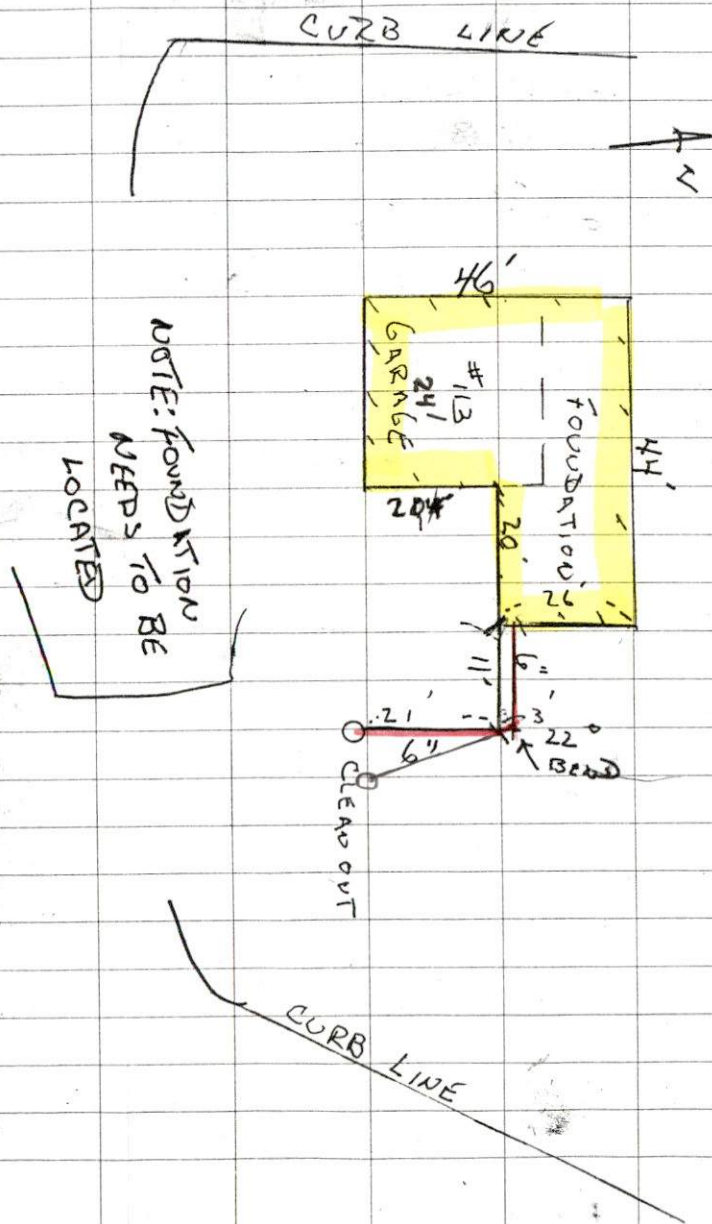 CURB LINE
N
46'
GARAGE
24'
#13
FOUNDATION
44'
20'
20'
26'
NOTE: FOUNDATION
NEEDS TO BE
LOCATED
11'
6"
21'
3'
22°
BEND
6"
CLEAN OUT
CURB LINE